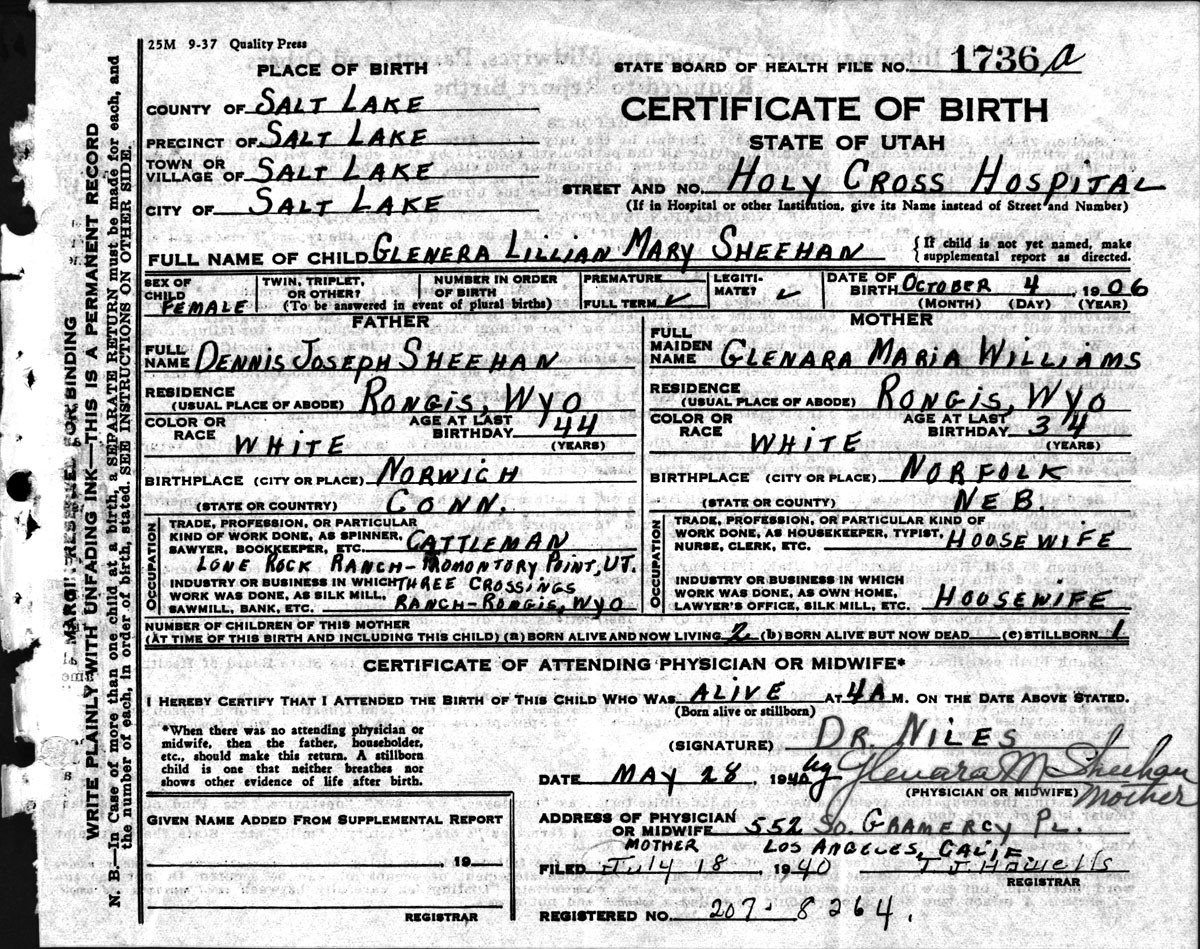 25M 9-37 Quality Press
PLACE OF BIRTH
STATE BOARD OF HEALTH FILE NO. 1736 a
COUNTY OF SALT LAKE
CERTIFICATE OF BIRTH
PRECINCT OF SALT LAKE
STATE OF UTAH
TOWN OR VILLAGE OF SALT LAKE
STREET AND NO. HOLY CROSS HOSPITAL
CITY OF SALT LAKE
(If in Hospital or other Institution, give its Name instead of Street and Number)
FULL NAME OF CHILD GLENERA LILLIAN MARY SHEEHAN
{If child is not yet named, make
supplemental report as directed.
SEX OF CHILD FEMALE
TWIN, TRIPLET, OR OTHER?
NUMBER IN ORDER OF BIRTH
(To be answered in event of plural births)
PREMATURE
FULL TERM ✓
LEGITI-
MATE? ✓
DATE OF BIRTH OCTOBER 4, 1906
(MONTH) (DAY) (YEAR)
FATHER
FULL NAME DENNIS JOSEPH SHEEHAN
RESIDENCE (USUAL PLACE OF ABODE) RONGIS, WYO
COLOR OR RACE WHITE
AGE AT LAST BIRTHDAY 44 (YEARS)
BIRTHPLACE (CITY OR PLACE) NORWICH
(STATE OR COUNTRY) CONN.
OCCUPATION
TRADE, PROFESSION, OR PARTICULAR
KIND OF WORK DONE, AS SPINNER,
SAWYER, BOOKKEEPER, ETC. CATTLEMAN
LONE ROCK RANCH-PROMONTORY POINT, UT.
INDUSTRY OR BUSINESS IN WHICH THREE CROSSINGS
WORK WAS DONE, AS SILK MILL,
SAWMILL, BANK, ETC. RANCH-RONGIS, WYO
MOTHER
FULL MAIDEN NAME GLENARA MARIA WILLIAMS
RESIDENCE (USUAL PLACE OF ABODE) RONGIS, WYO
COLOR OR RACE WHITE
AGE AT LAST BIRTHDAY 34 (YEARS)
BIRTHPLACE (CITY OR PLACE) NORFOLK
(STATE OR COUNTY) NEB.
OCCUPATION
TRADE, PROFESSION, OR PARTICULAR KIND OF
WORK DONE, AS HOUSEKEEPER, TYPIST,
NURSE, CLERK, ETC. HOUSEWIFE
INDUSTRY OR BUSINESS IN WHICH
WORK WAS DONE, AS OWN HOME,
LAWYER'S OFFICE, SILK MILL, ETC. HOUSEWIFE
NUMBER OF CHILDREN OF THIS MOTHER
(AT TIME OF THIS BIRTH AND INCLUDING THIS CHILD) (a) BORN ALIVE AND NOW LIVING 2 (b) BORN ALIVE BUT NOW DEAD (c) STILLBORN 1
CERTIFICATE OF ATTENDING PHYSICIAN OR MIDWIFE*
I HEREBY CERTIFY THAT I ATTENDED THE BIRTH OF THIS CHILD WHO WAS ALIVE AT 4A M. ON THE DATE ABOVE STATED.
(Born alive or stillborn)
*When there was no attending physician or
midwife, then the father, householder,
etc., should make this return. A stillborn
child is one that neither breathes nor
shows other evidence of life after birth.
(SIGNATURE) DR. NILES
by Glenara M Sheehan
DATE MAY 28, 1940
(PHYSICIAN OR MIDWIFE) Mother
ADDRESS OF PHYSICIAN OR MIDWIFE 552 SO. GRAMERCY PL.
MOTHER LOS ANGELES, CALIF
FILED July 18, 1940 T. J. Howells
REGISTRAR
REGISTERED NO. 207-8264.
GIVEN NAME ADDED FROM SUPPLEMENTAL REPORT
, 19
REGISTRAR
MARGIN RESERVED FOR BINDING
WRITE PLAINLY WITH UNFADING INK—THIS IS A PERMANENT RECORD
N. B.—In Case of more than one child at a birth, a SEPARATE RETURN must be made for each, and
the number of each, in order of birth, stated. SEE INSTRUCTIONS ON OTHER SIDE.